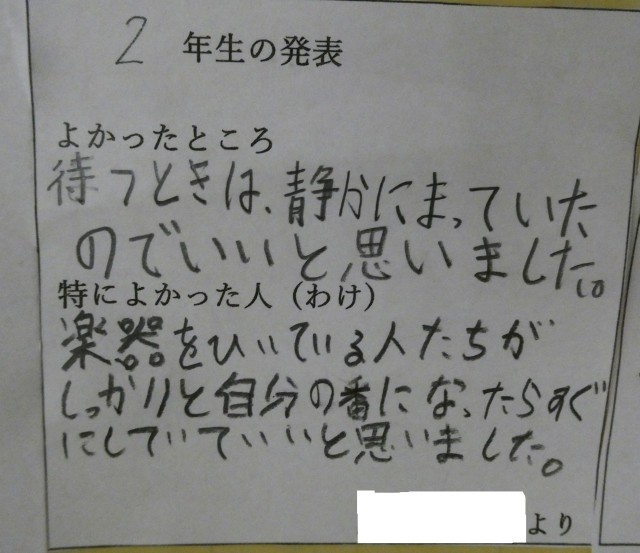 2 年生の発表
よかったところ
待つときは、静かにまっていた
のでいいと思いました。
特によかった人（わけ）
楽器をひいている人たちが
しっかりと自分の番になったらすぐ
にしていていいと思いました。
より